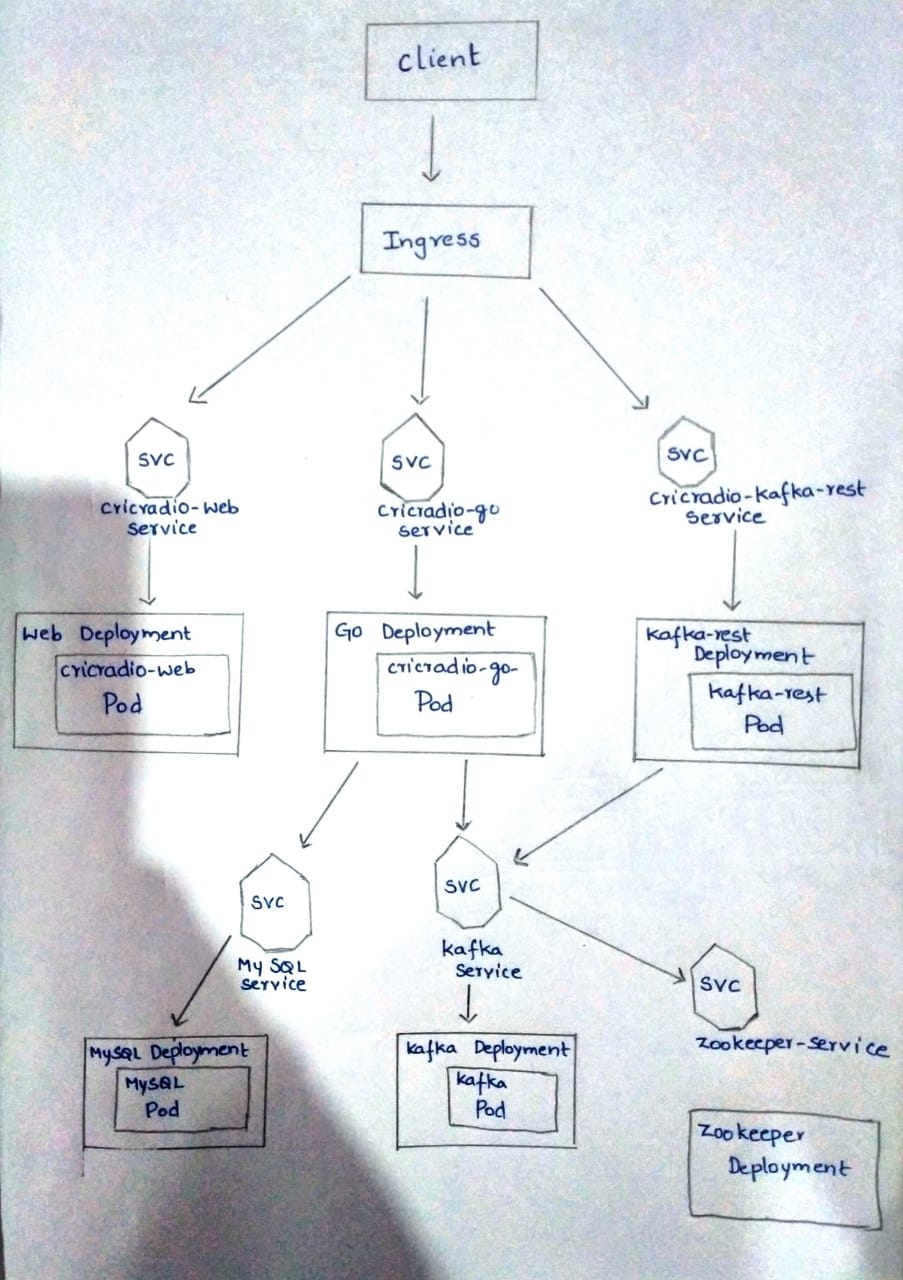 Client
Ingress
SVC
cricradio-web
service
SVC
cricradio-go
service
SVC
cricradio-kafka-rest
service
Web Deployment
cricradio-web
Pod
Go Deployment
cricradio-go-
Pod
kafka-rest
Deployment
kafka-rest
Pod
SVC
My SQL
service
SVC
kafka
Service
SVC
zookeeper-service
MySQL Deployment
MySQL
Pod
kafka Deployment
kafka
Pod
Zookeeper
Deployment